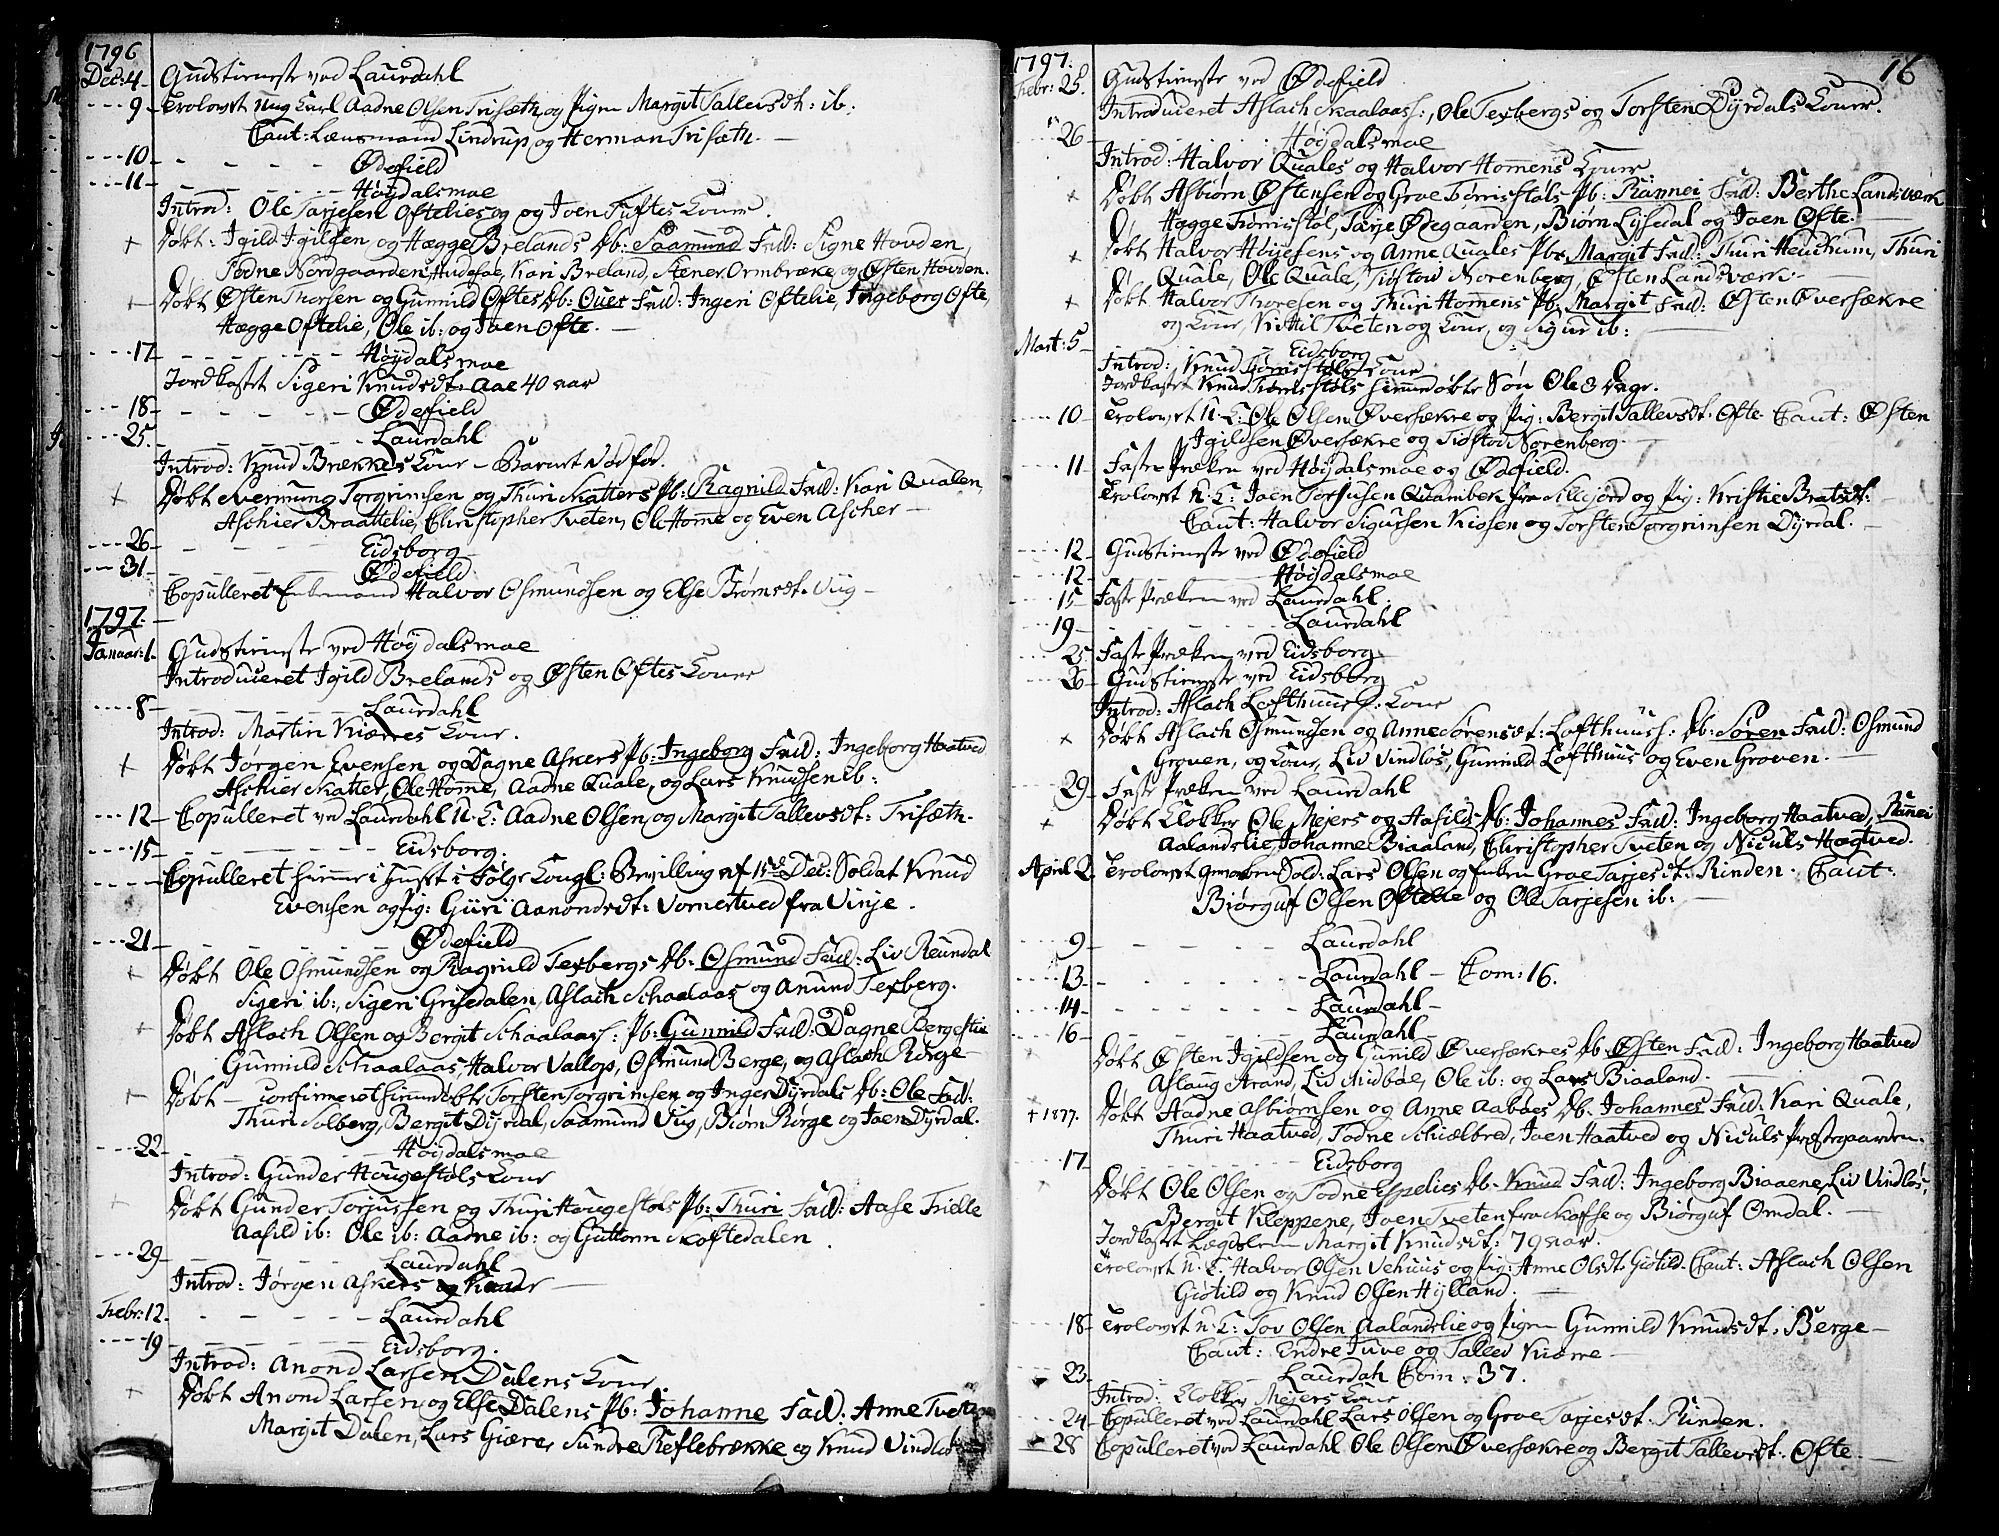 1796
Dec: 4 Gudstieneste ved Laurdahl
9 Trolovet Ung Carl Aadne Olsen Trisæth og Pigen Margit Tallevsdt: ib:
Caut: Lænsmand Lindrup og Herman Trisæth.
10 Ødefield
11 Høydalsmoe
Introd: Ole Tarjesen Ofteliesog og Joen Tuftes Koner.
Døbt: Igild Igildsen og Hægge Brelands Db: Saamund Fad: Signe Hovden,
Todne Nordgaarden, Kari Breland, Stener Ormbrække og Østen Hovden.
Døbt Østen Thorsen og Gunnild Oftes Db: Fad: Ingeri Oftelie, Ingeborg Ofte,
Hægge Oftelie, Ole ib: og Joen Ofte.
17 Høydalsmoe
Jordkastet Sigeri Knudsdt. 40 aar
18 Ødefield
25 Laurdahl
Introd: Knud Brækkes Kone – Barnet Dødfød.
Døbt Vermung Torgrimsen og Thuri Skatters Pb: Ragnild Fad: Kari Qualen,
Aschier Braattelie, Christopher Tveten, Ole Homme og Even Ascher
26 Eidsborg
31 Ødefield
Copulleret Enkemand Halvor Osmundsen og Else Biørnsdt. Vig
1797.
Januar: 1. Gudstieneste ved Høydalsmoe
Introduceret Igild Brelands og Østen Oftes Koner
8 Laurdahl
Introd: Martin Kiærres Kone.
Døbt Jørgen Evensen og Dagne Askers Pb: Ingeborg Fad: Ingeborg Haatved
Aschier Skatter, Ole Homme, Aadne Quale, og Lars Knudsen ib:
12 Copulleret ved Laurdahl U. K: Aadne Olsen og Margit Tallevsdt: Trisæth.
15 Eidsborg.
Copulleret hiemme i Huset i Følge Kongl: Bevilling af 15de Dec: Soldat Knud
Evensen og Pig: Guri Aanondsdt: Vomestved fra Vinje.
21 Ødefield
Døbt Ole Osmundsen og Ragnild Texbergs Db: Osmund Fad: Liv Reundal
Sigeri ib:, Sigeri Grisedalen, Aslach Schaalaas og Anund Texberg.
Døbt Aslach Olsen og Bergit Schaalaas: Pb: Gunnild Fad: Dagne Bergestie
Gunnild Schaalaas, Halvor Vallop, Osmund Berge, og Aslach Rorge
Døbt confirmeret hiemmedøbt Torsten Torgrimsen og Inger Dyrdals Db: Ole Fad:
Thuri Solberg, Bergit Dyrdal, Saamund Vig, Biørn Rorge og Joen Dyrdal.
22 Høydalsmoe
Introd: Gunder Hougestøls Kone
Døbt Gunder Torjussen og Thuri Hougestøls Pb: Thuri Fad: Aase Trielle
Aasild ib: Ole ib: Aadne ib: og Guttorm Skoftedalen.
29 Laurdahl
Introd: Jørgen Askers Kone
Febr: 12 Laurdahl
19 Eidsborg.
Introd: Anond Larsen Dalens Kone
Døbt Anond Larsen og Else Dalens Pb: Johanne Fad: Anne Tveten
Margit Dalen, Lars Giære, Sundre Reflebrække og Knud Vindlos
16
1797.
Febr: 25. Gudstieneste ved Ødefield
Introduceret Aslach Skaalaas:, Ole Texbergs og Torsten Dyrdals Koner.
26 Høydalsmoe
Introd: Halvor Quales og Halvor Homens Koner.
Døbt Asbiørn Østensen og Groe Tørrisstøls Pb: Rannei Fad: Berthe Landsværk
Hægge Tørrisstøl, Tarje Ødegaarden, Biørn Lysedal og Joen Ofte.
Døbt Halvor Høyesens og Anne Quales Pb: Margit Fad: Thuri Heuchum, Thuri
Quale, Ole Quale, Tiøstov Norenberg, Østen Landsværk
Døbt Halvor Thoresen og Thuri Homens Pb: Margit Fad: Østen Øversækre
og Kone, Kittil Tveten og Kone, og Sigur ib:
Mart: 5 Eidsborg
Introd: Knud Tørrisstøls Kone
Jordkastet Knud Tørrisstøls hiemmedøbte Søn Ole 3 Dage.
10 Trolovet U. K: Ole Olsen Øversækre og Pig: Bergit Tallevsdt. Ofte Caut: Østen
Igildsen Øversækre og Tiøstov Norenberg.
11 Faste Præken ved Høydalsmoe og Ødefield.
Trolovet U. K: Joen Torjusen Quambek fra Sillejord og Pig: Kristie Bratsdt:
Caut: Halvor Sigursen Kiosen og Torsten Torgrimsen Dyrdal.
12 Gudstieneste ved Ødefield
12 Høydalsmoe
15 Faste Præken ved Laurdahl.
19 Laurdahl
25 Faste Præken ved Eidsborg
26 Gudstieneste ved Eidsborg
Introd: Aslach Lofthuus: Kone
Døbt Aslach Osmundsen og Anne Sørensdt: Lofthuus: Db: Søren Fad: Osmund
Groven, og Kone, Liv Vindlos, Gunnild Lofthuus og Even Groven.
29 Faste Præken ved Laurdahl
Døbt Klokker Ole Mejers og Aasilds Db: Johannes Fad: Ingeborg Haatved, Rannei
Aalandslie, Johanne Biaaland, Christopher Tveten og Niculs Haatved.
April 2. Trolovet Sold: Lars Olsen og Enken Groe Tarjesdt. Rinden. Caut:
Biørguf Olsen Oftelie og Ole Tarjesen ib:
9 Laurdahl
13 Laurdahl – Com: 16.
14 Laurdahl
16 Laurdahl
Døbt Østen Igildsen og Gunild Øversækres Db: Østen Fad: Ingeborg Haatved
Aslaug Strand, Liv Midbøe, Ole ib: og Lars Biaaland.
† 1877. Døbt Aadne Asbiørnsen og Anne Aabøes Db: Johannes Fad: Kari Quale,
Thuri Haatved, Todne Schiælbred, Joen Haatved og Niculs Præstegaarden.
17 Eidsborg
Døbt Ole Olsen og Todne Espelies Db: Knud Fad: Ingeborg Biaaene, Liv Vindlos,
Bergit Kleppene, Joen Tveten fra Skafse og Biørguf Omdal.
Jordkastet Lægdslem Margit Knudsdt: 79 aar.
Trolovet U. K. Halvor Olsen Vehuus og Pig: Anne Olsdt. Giøtild. Caut: Aslach Olsen
Giøtild og Knud Olsen Hylland.
18 Trolovet U. K: Tov Olsen Aalandslie og Pigen Gunnild Knudsdt: Berge
Caut: Endre Juve og Tallev Kiærre
23 Laurdah Com: 37.
Introd: Klokker Mejers Kone
24 Copulleret ved Laurdahl Lars Olsen og Groe Tarjesdt. Rinden.
28 Copulleret ved Laurdahl Ole Olsen Øversækre og Bergit Tallevsdt. Ofte.